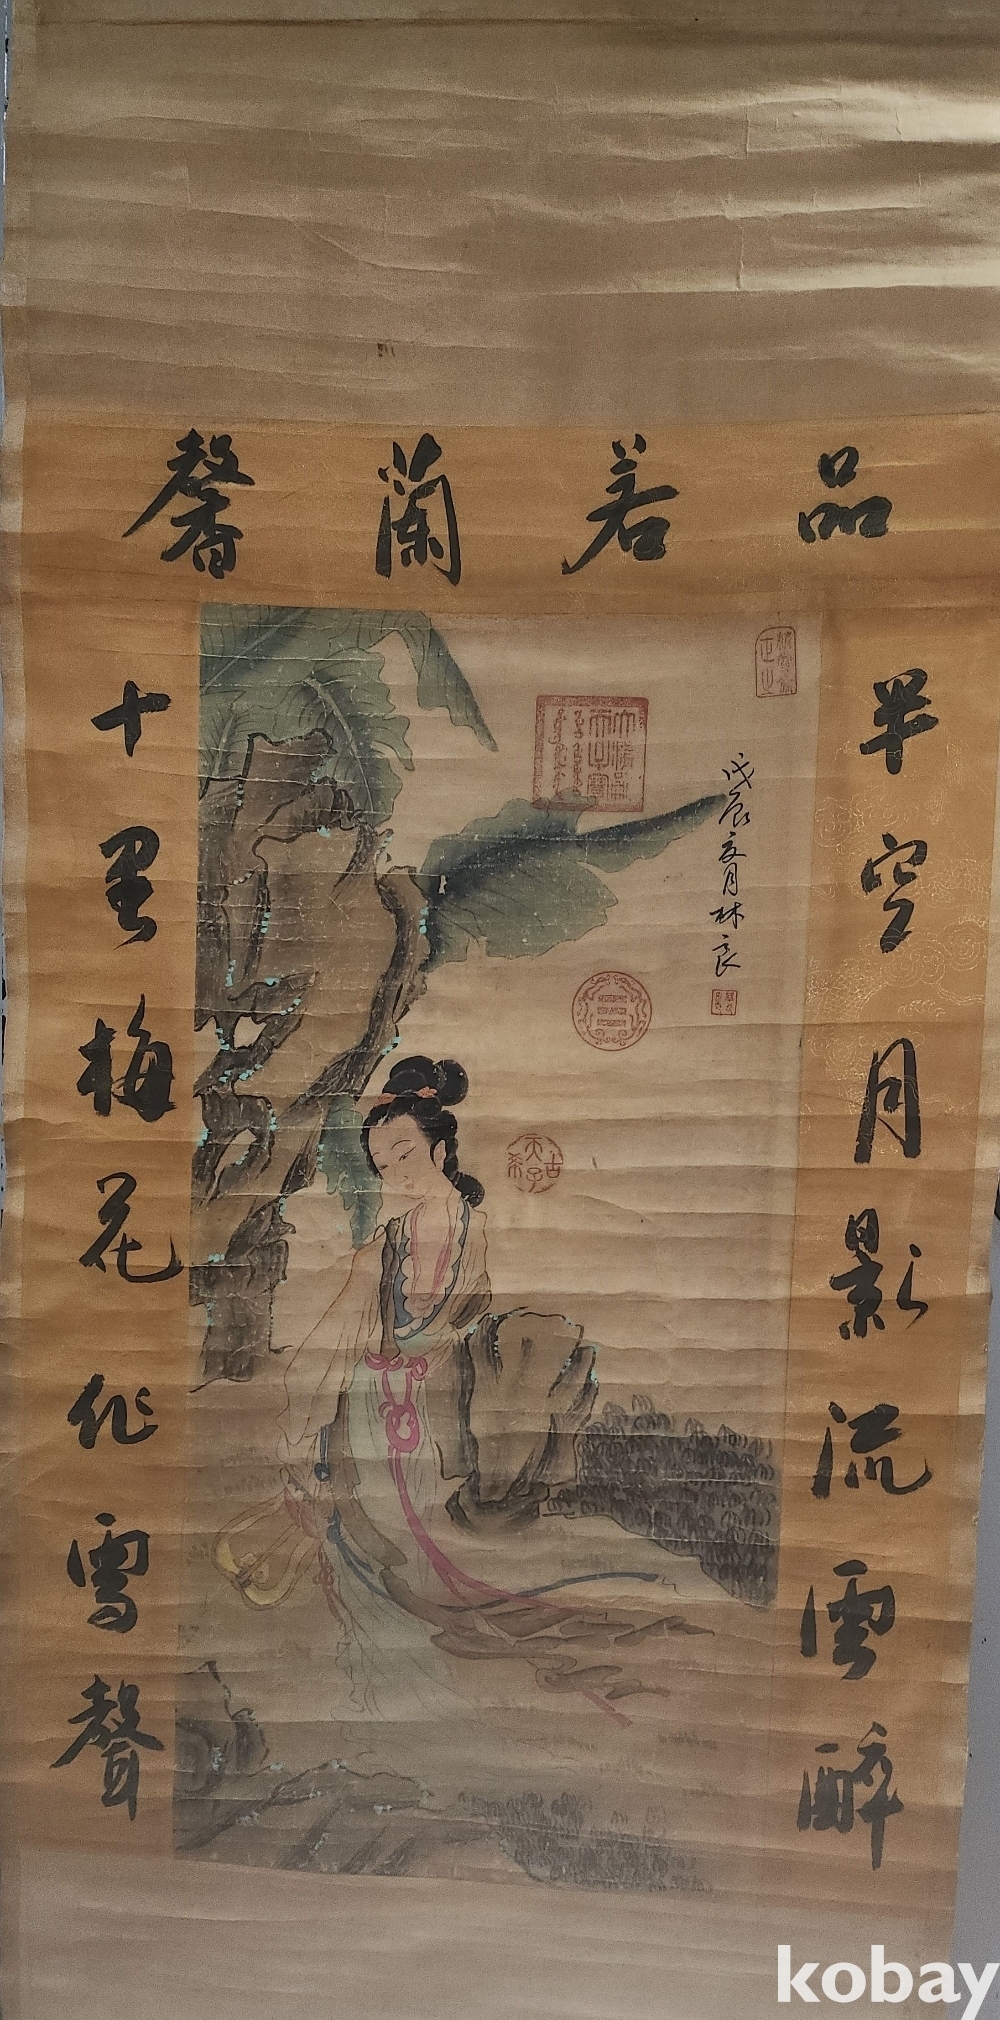 品若蘭馨
半空月影流雲醉
十里梅花作雪聲
戊辰文月林良
古希天子
kobay